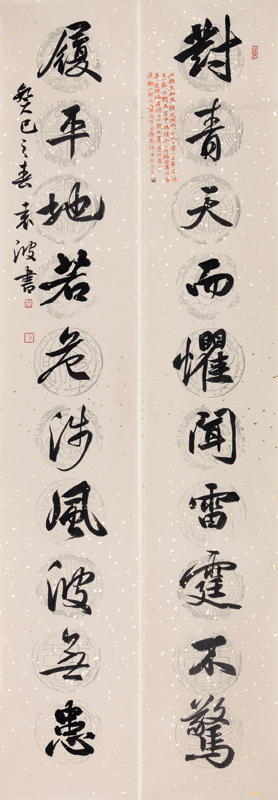 對青天而懼聞雷霆不驚
履平地若危涉風波無患
癸巳之春袁波書